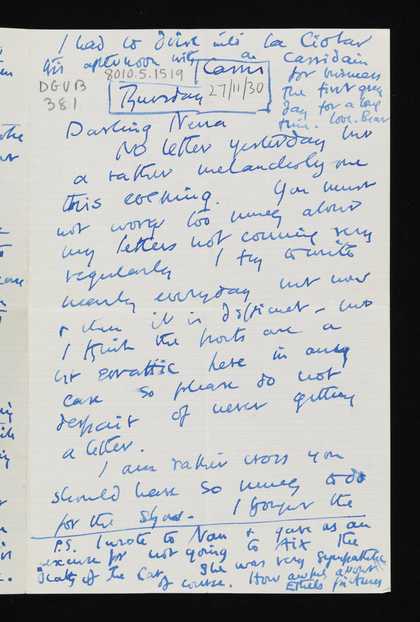 I had to drive into La Ciotat
this afternoon with a Cassidain
for business
the first grey
day for a long
time. love. Bear
8010.5.1519
DGVB
381
Cassis
Thursday 27/11/30
Darling Nena
No letter yesterday but
a rather melancholy one
this evening. You must
not worry too much about
my letters not coming very
regularly I try to write
nearly everyday but now
& then it is difficult – but
I think the posts are a
bit erratic here in any
case so please do not
despair of never getting
a letter.
I am rather cross you
should have so much to do
for the show. I forget the
P.S. I wrote to Nan & gave as an
excuse for not going to Aix the
death of the Cat. She was very sympathetic
of course. How awful about
Ethels pictures